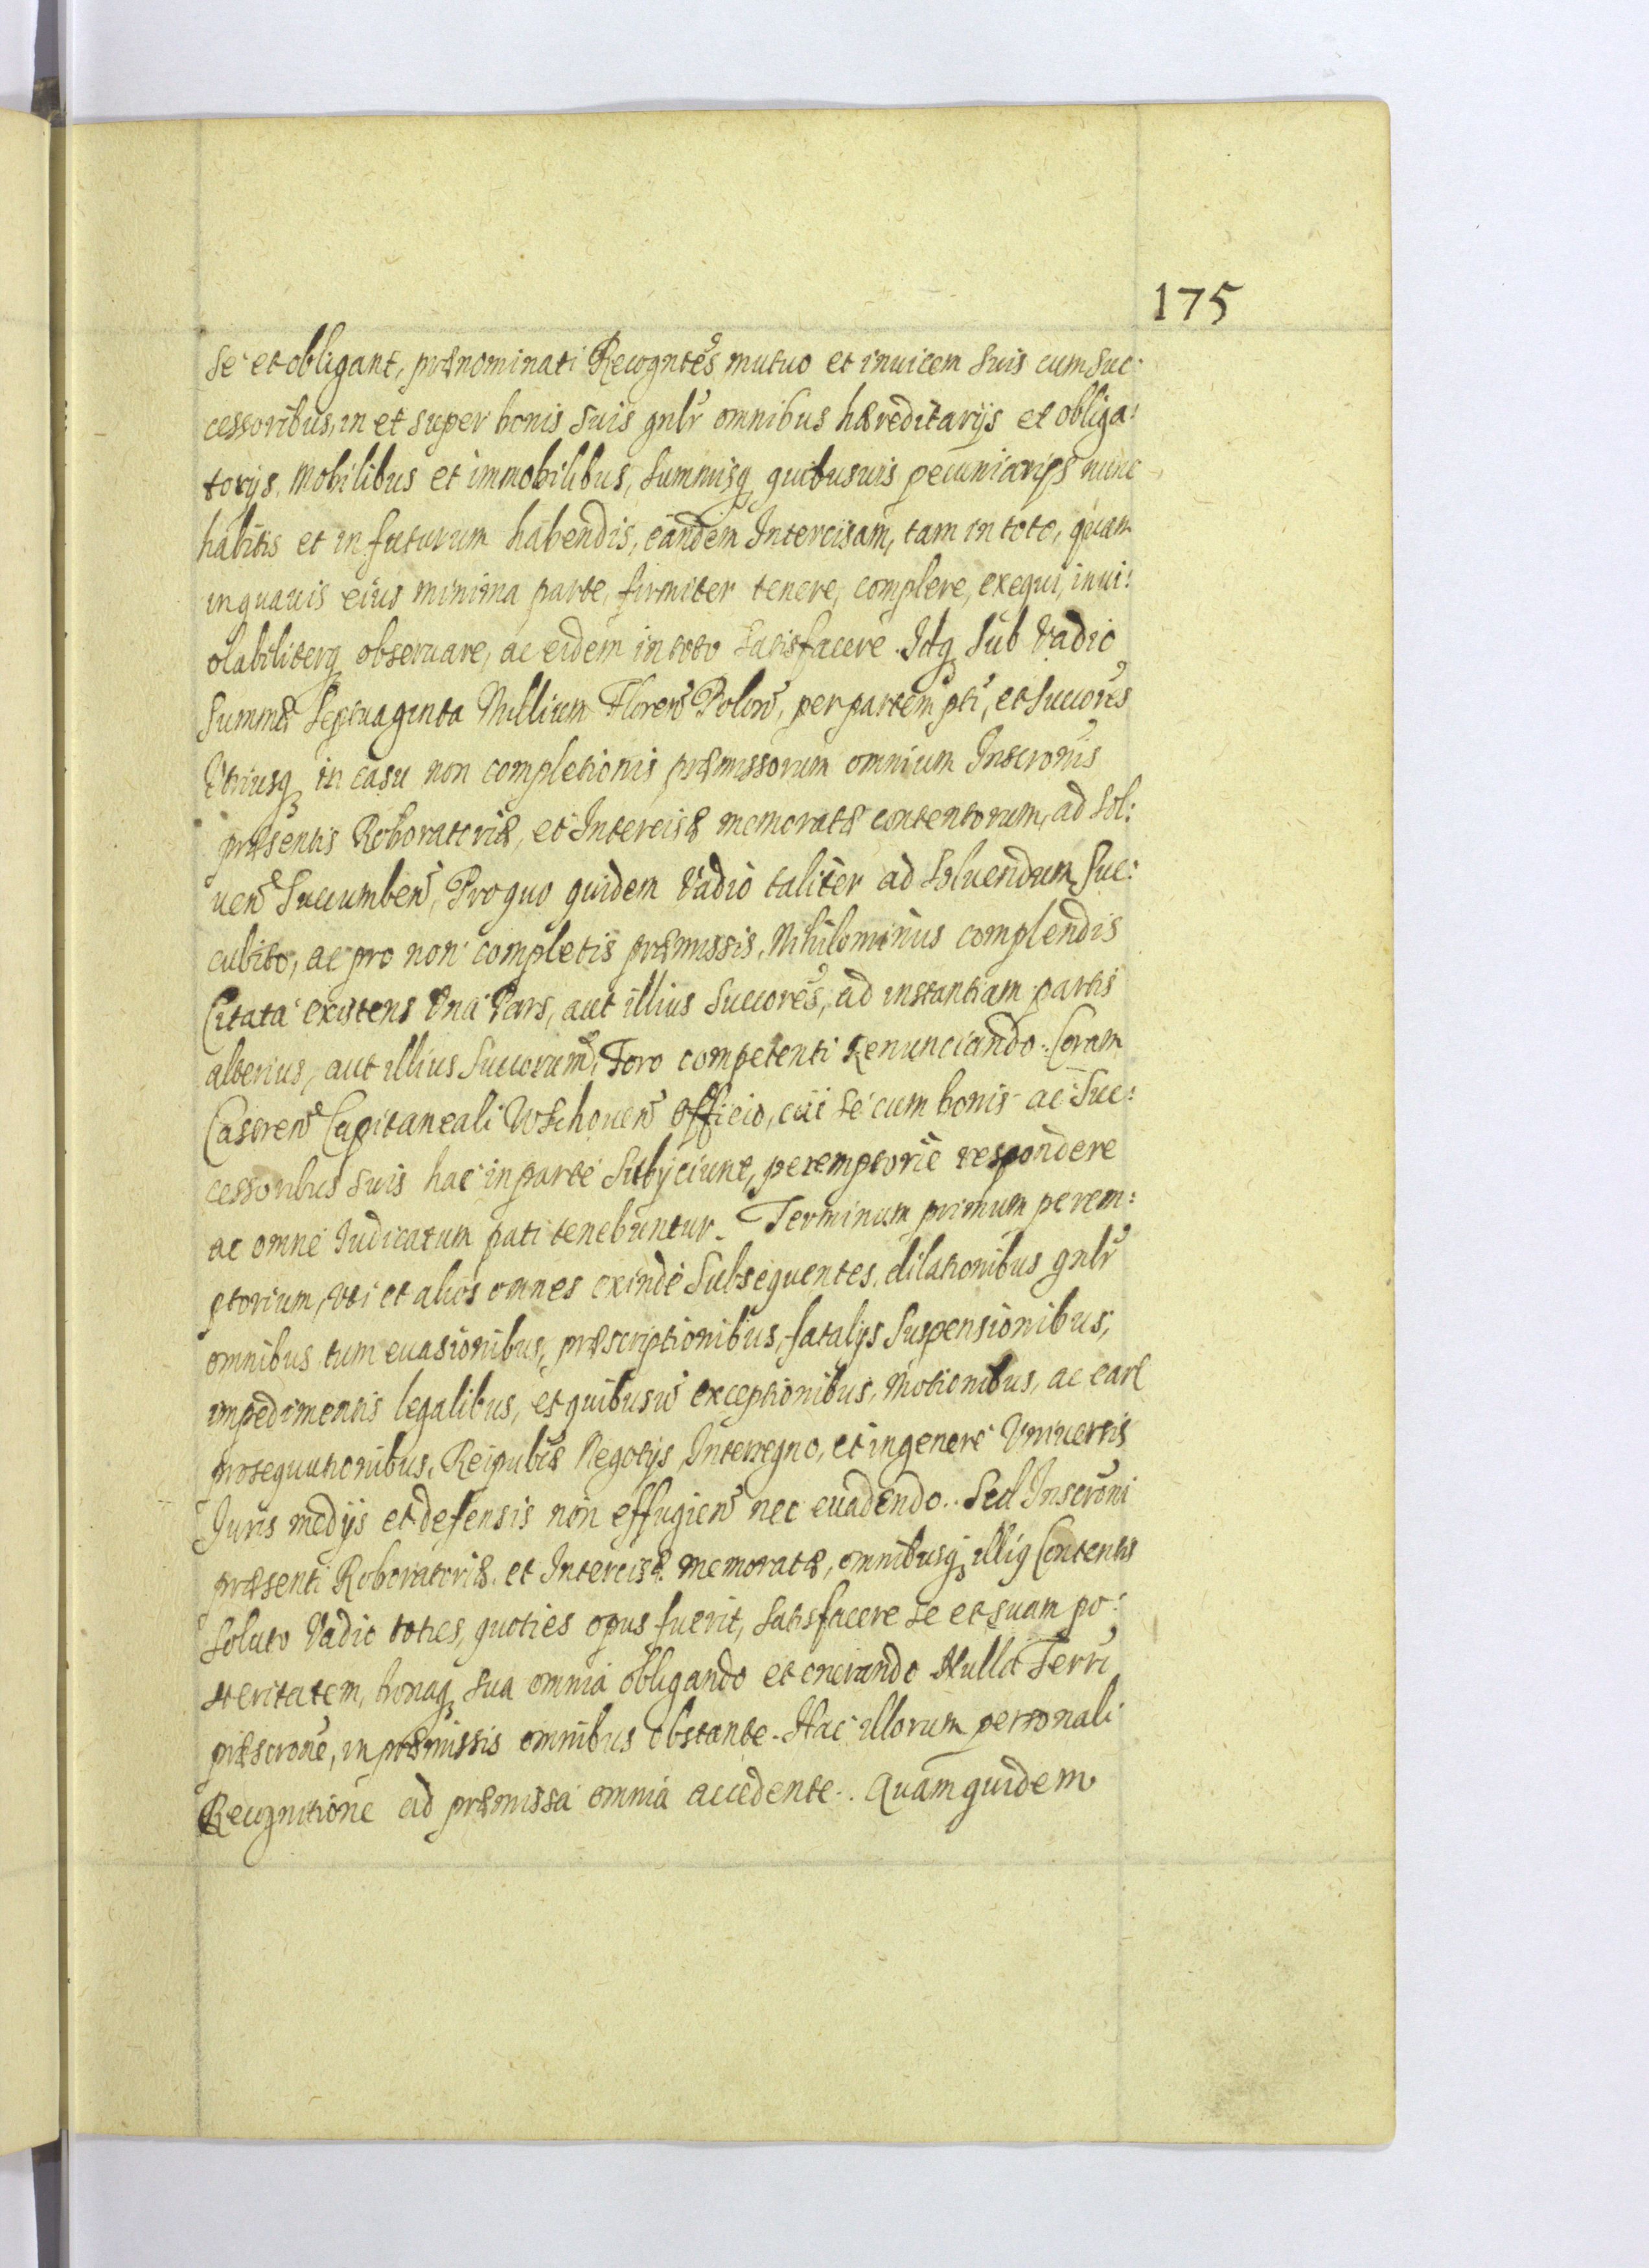 175
se et obligant, prænominati Recogntes mutuo et inuicem suis cum suc:
cessoribus, in et super bonis suis gnlr omnibus hæreditarijs et obliga:
torijs, Mobilibus et immobilibus, summisq quibusuis pecuniarijs nunc
habitis et in futurum habendis, eandem Intercisam, tam in toto, quam
in quauis eius minima parte, firmiter tenere, complere, exequi, inui:
olabiliterq obseruare, ac eidem in toto satisfacere. Idq sub Vadio
summæ Septuaginta Millium Floren Polon, per partem pti, et succores
Vtriusq in casu non completionis præmissorum omnium Inscronis
præsentis Roboratoriæ, et Intercisæ memoratæ contentorum, ad sol:
uen succumben, Pro quo quidem Vadio taliter ad soluendum suc:
cubito, ac pro non completis præmissis, Nihilominus complendis
Citata existens Vna Pars, aut illius succores, ad instantiam partis
alterius, aut illius succorum, Foro competenti Renunciando. Coram
Castren Capitaneali Wschouen Officio, cui se cum bonis ac suc:
cessoribus suis hac in parte subijciunt, peremptorie respondere
ac omne Iudicatum pati tenebuntur. Terminum primum perem:
ptorium, Vti et alios omnes exinde subsequentes, dilationibus gnlr
omnibus, tum euasionibus, præscriptionibus, fatalijs suspensionibus,
impedimentis legalibus, et quibusuis exceptionibus, Motionibus, ac ear
prosequutionibus, Reipublæ Negotijs, Interregno, et in genere Vniuersis
Iuris medijs et defensis non effugien nec euadendo. Sed Inscroni
præsenti Roboratoriæ, et Intercisæ memoratæ, omnibusq illiq Contentis
soluto Vadio toties, quoties opus fuerit, satisfacere se et suam po:
steritatem, bonaq sua omnia obligando et onerando Nulla Terri
præscrone, in præmissis omnibus obstante. Hac illorum personali
Recognitione ad præmissa omnia accedente. Quam quidem